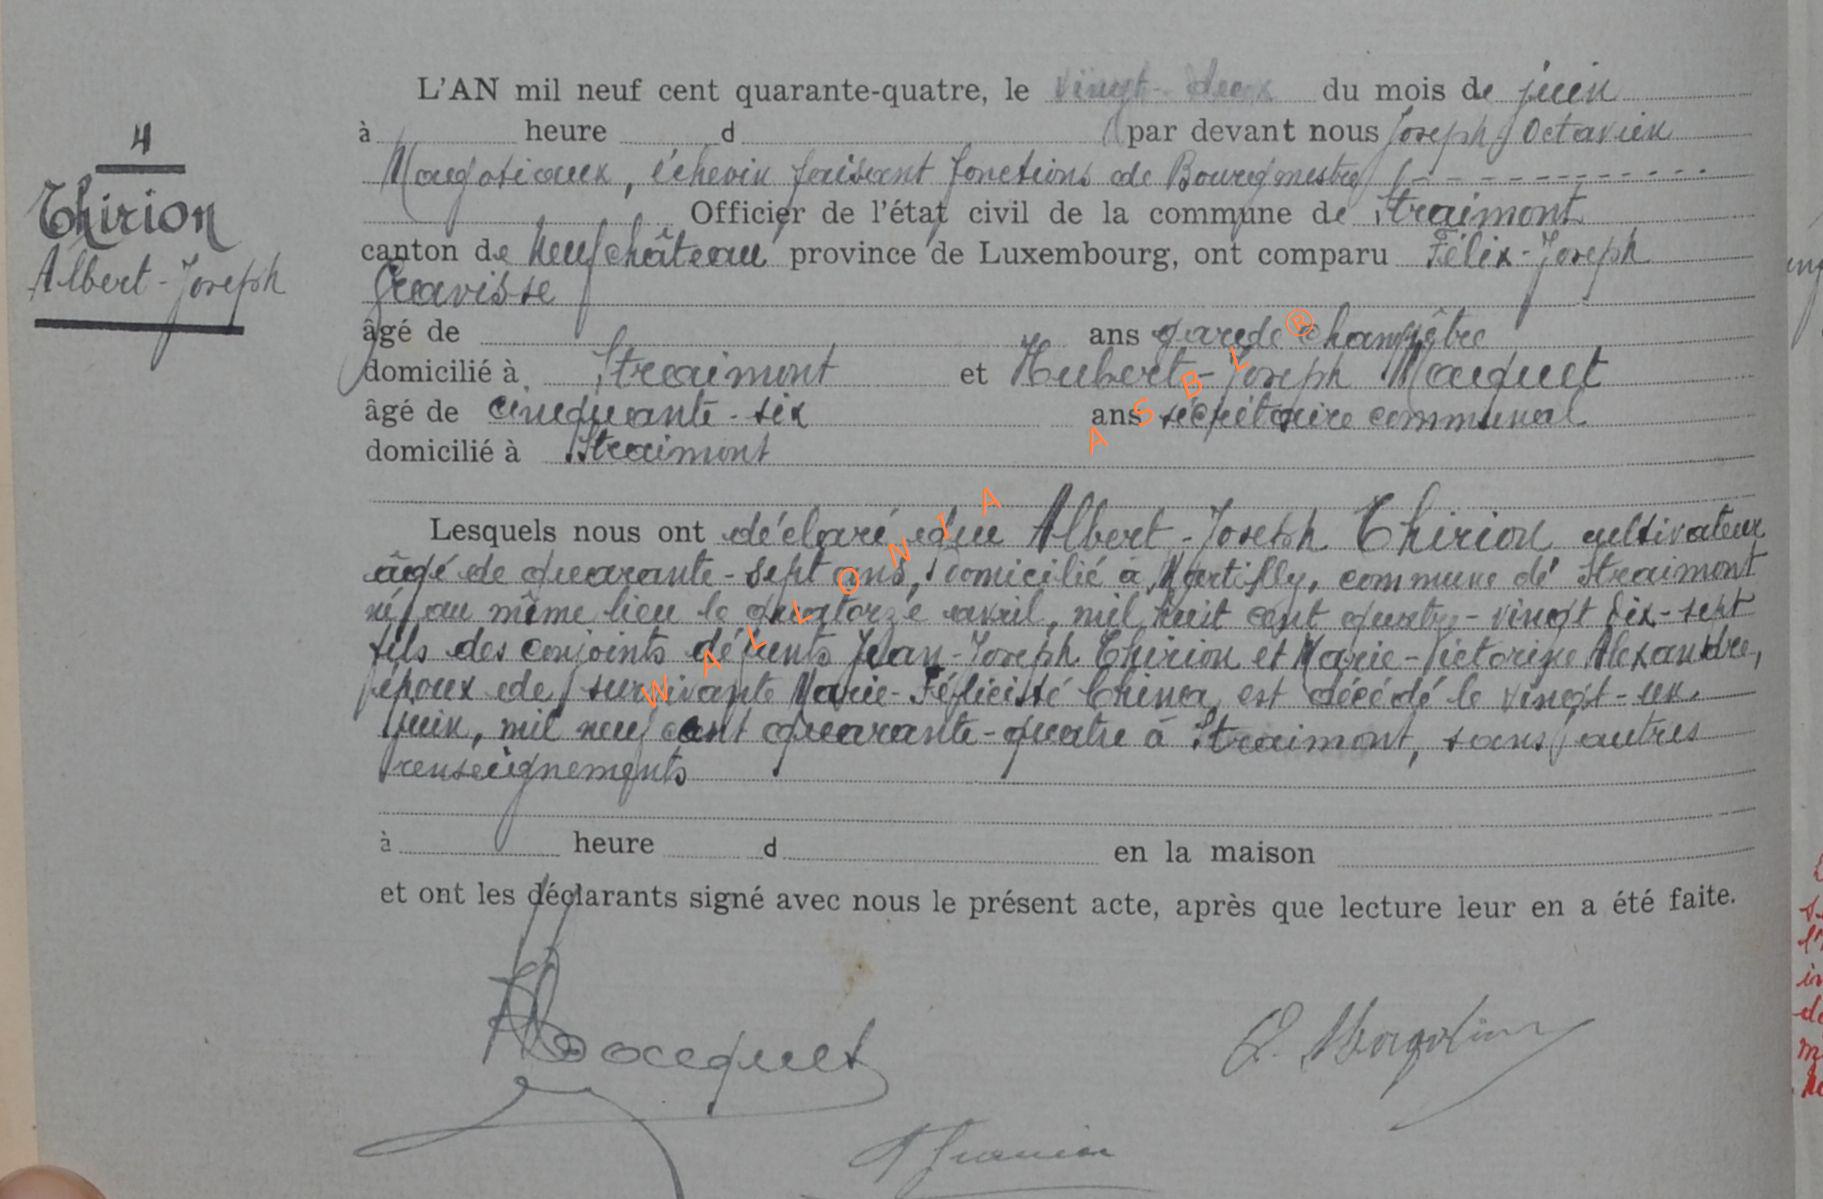 4
Thirion
Albert-Joseph
L'AN mil neuf cent quarante-quatre, le vingt-deux du mois de juin
à heure d par devant nous Joseph Octavien
échevin faisant fonctions de Bourgmestre
Officier de l'état civil de la commune de Straimont
canton de Neufchâteau province de Luxembourg, ont comparu Félix-Joseph
âgé de ans garde champêtre
domicilié à Straimont et Hubert-Joseph Macquet
âgé de cinquante-six ans secrétaire communal
domicilié à Straimont
Lesquels nous ont déclaré que Albert-Joseph Thirion cultivateur
âgé de quarante-sept ans, domicilié à Martilly, commune de Straimont
né au même lieu le quatorze avril, mil huit cent quatre-vingt dix-sept
fils des conjoints défunts Jean-Joseph Thirion et Marie-Victorine Alexandre,
époux de survivante Marie-Félicité est décédé le vingt-un
juin, mil neuf cent quarante-quatre à Straimont, sans autres
renseignements
à heure d en la maison
et ont les déclarants signé avec nous le présent acte, après que lecture leur en a été faite.
WALLONIA ASBL ®